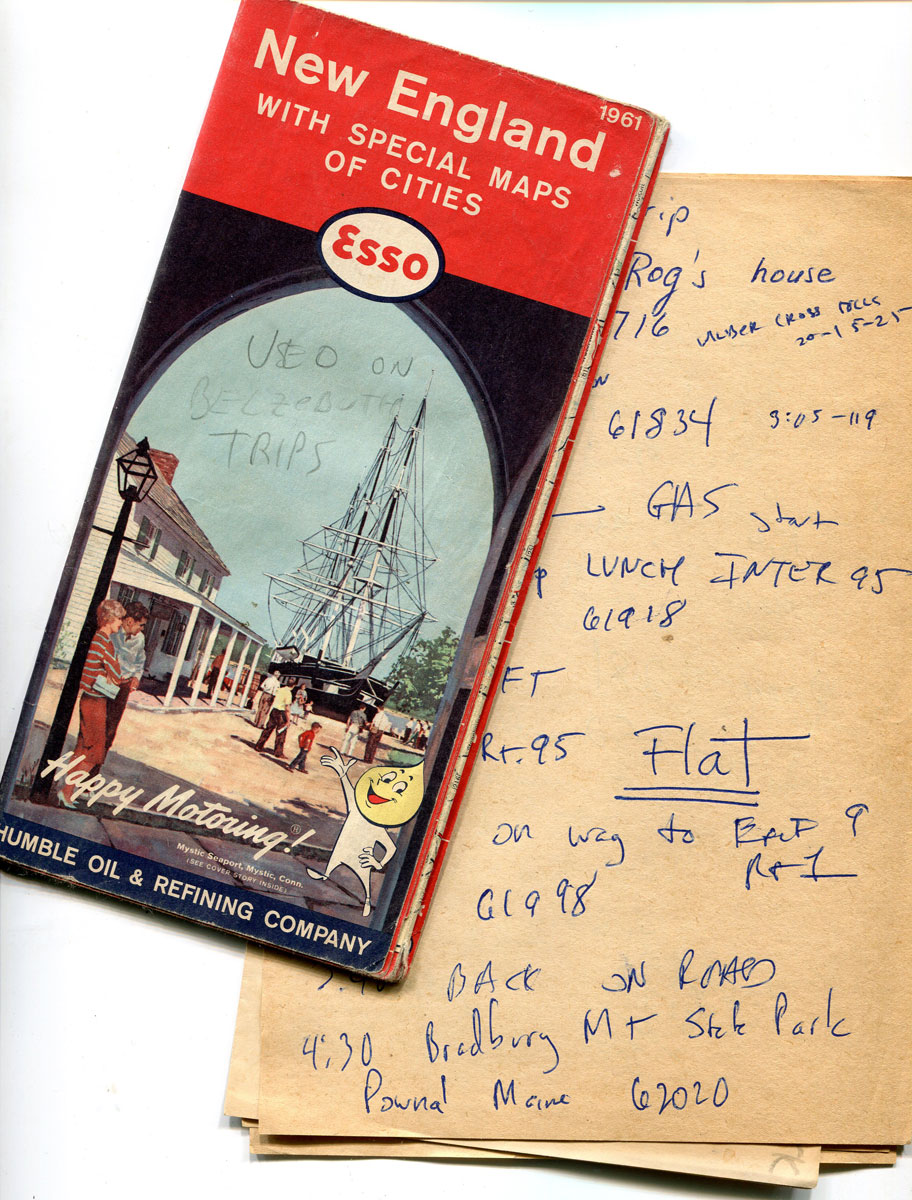 New England
1961
WITH SPECIAL MAPS
OF CITIES
Esso
USED ON
BELZEBUTH
TRIPS
Happy Motoring!®
Mystic Seaport, Mystic, Conn.
(SEE COVER STORY INSIDE)
HUMBLE OIL & REFINING COMPANY
rip
Rog's house
716 WILBER CROSS TOLLS
20-15-25
61834 3:05-119
GAS start
p LUNCH INTER 95
61918
FT
Rt.95 Flat
on way to Exit 9
Rt 1
61998
BACK ON ROAD
4:30 Bradbury Mt State Park
Pownal Maine 62020